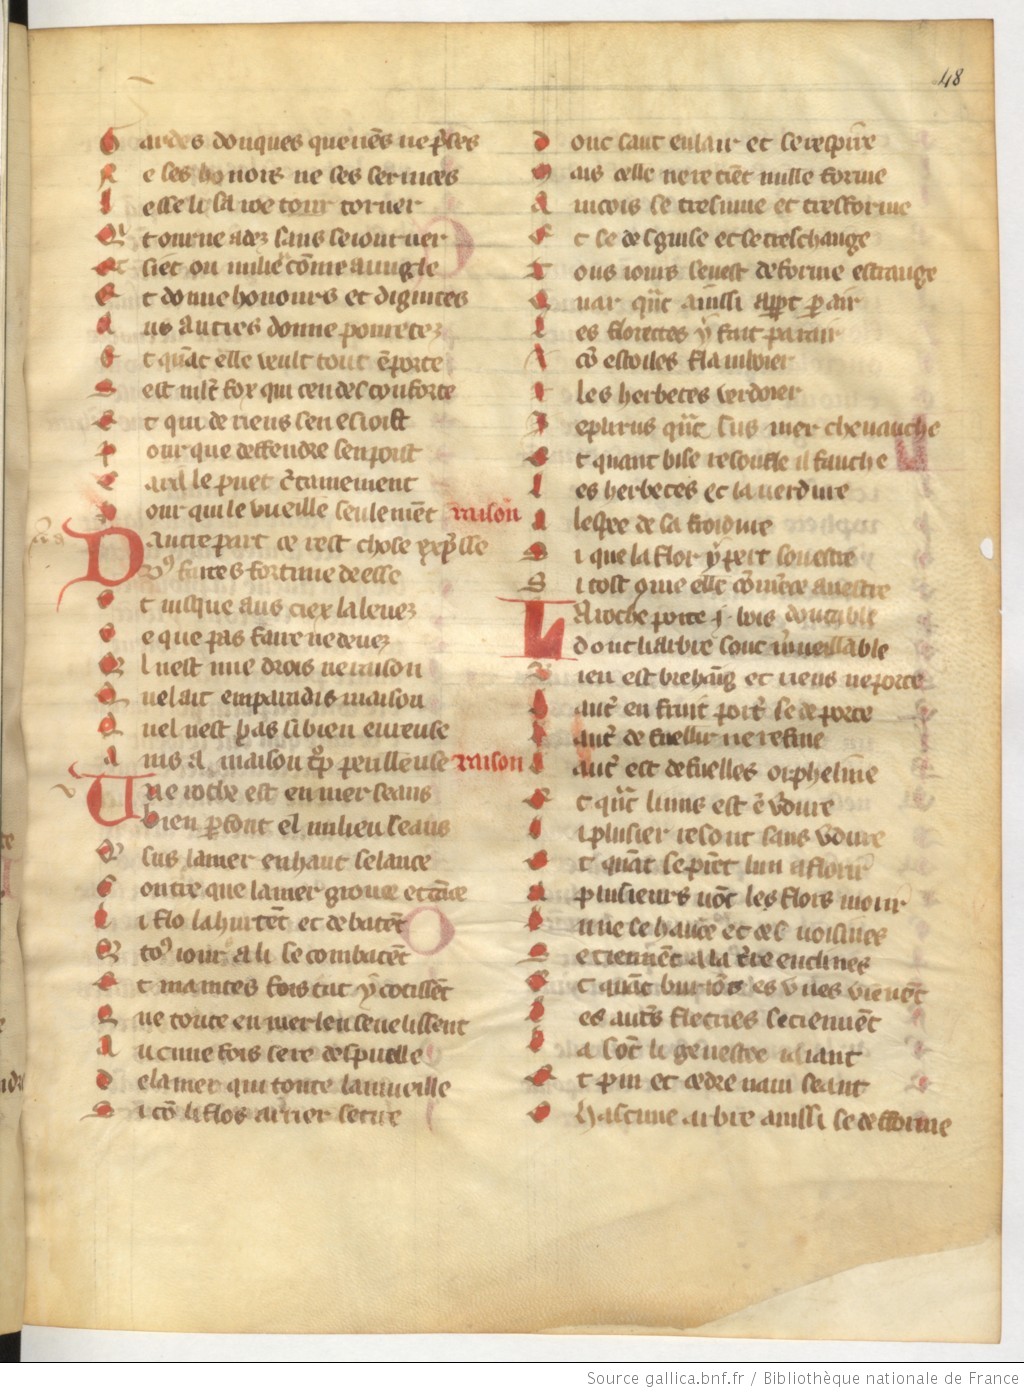 48
Gardes donques que uēs ne p̄ses
Ne ses honors ne ses seruices
lesse li sa roe tour torner
Qi tourne adez sans seiourner
Et siet ou milieu cōme auugle
Et donne honours et dignites
A us autres donne pouretez
Et quāt elle veult tout ēporte
S est mlt̄ fox qui ceu desconforte
Et qui de riens sen esioist
Pour que deffendre sen poist
Card le puet c̄tainement
Pour qui le vueille seulemēt raison
Dautre part ce rest chose exp̄sse
Vo9 faites fortune deesse
Et iusque aus ciex la leuez
Ce que pas faire ne deuez
Il nest mie drois ne raison
Quelait emparadis maison
Quel nest pas si bien eureuse
Ains a maison trop perilleuse raison
Une roche est en mer seans
bien parfont el milieu leaus
Qi sus la mer en haut se lance
Contre que la mer grouce et tāce
Li flo la hurtēt et debatēt
Et to9 iour a li se combatēt
Et maintes fois tāt y cotissēt
Que toute en mer lenseuelissent
Aucune fois se re despuelle
De la mer qui toute la mueille
Si cō li flos arrier se tire
Donc saut en lair et se respire
Mais celle ne retiēt nulle forme
Ancois se tresmue et tresforme
Et se desguise et se treschange
Tous iours se uest deforme estrange
Quar qn̄t ainssi app̄t par air
Les florettes y fait parair
Et cō estoiles flamboier
Et les herbetes verdoier
Zephirus qn̄t sus mer cheuauche
Et quant bise resoufle il fauche
Les herbetes et la uerdure
A lespee de sa froidure
Si que la flor y pert son estre
Si tost que elle cōmēce a nestre
La roche porte i bois doutable
dont li arbre sont m̄ueillable
Lun est brehaīg et riens ne porte
Laut̄ en fruit port̄ se deporte
Laut̄ de fuellir ne refine
Laut̄ est de fuelles orpheline
Et qn̄t luns est ē v̄dure
Li plusier i sont sans v̄dure
Et quāt se prēt lun a florir
A plusieurs uōt les flors morir
Lune se hauce et ses uoisines
Se tienēt a la t̄re enclines
Et quāt burions es vnes viēnēt
Les aut̄s fletries se tienuēt
La sōt li genestre iaiant
Et pin et cedre nain seant
Chascune arbre ainssi se defforme